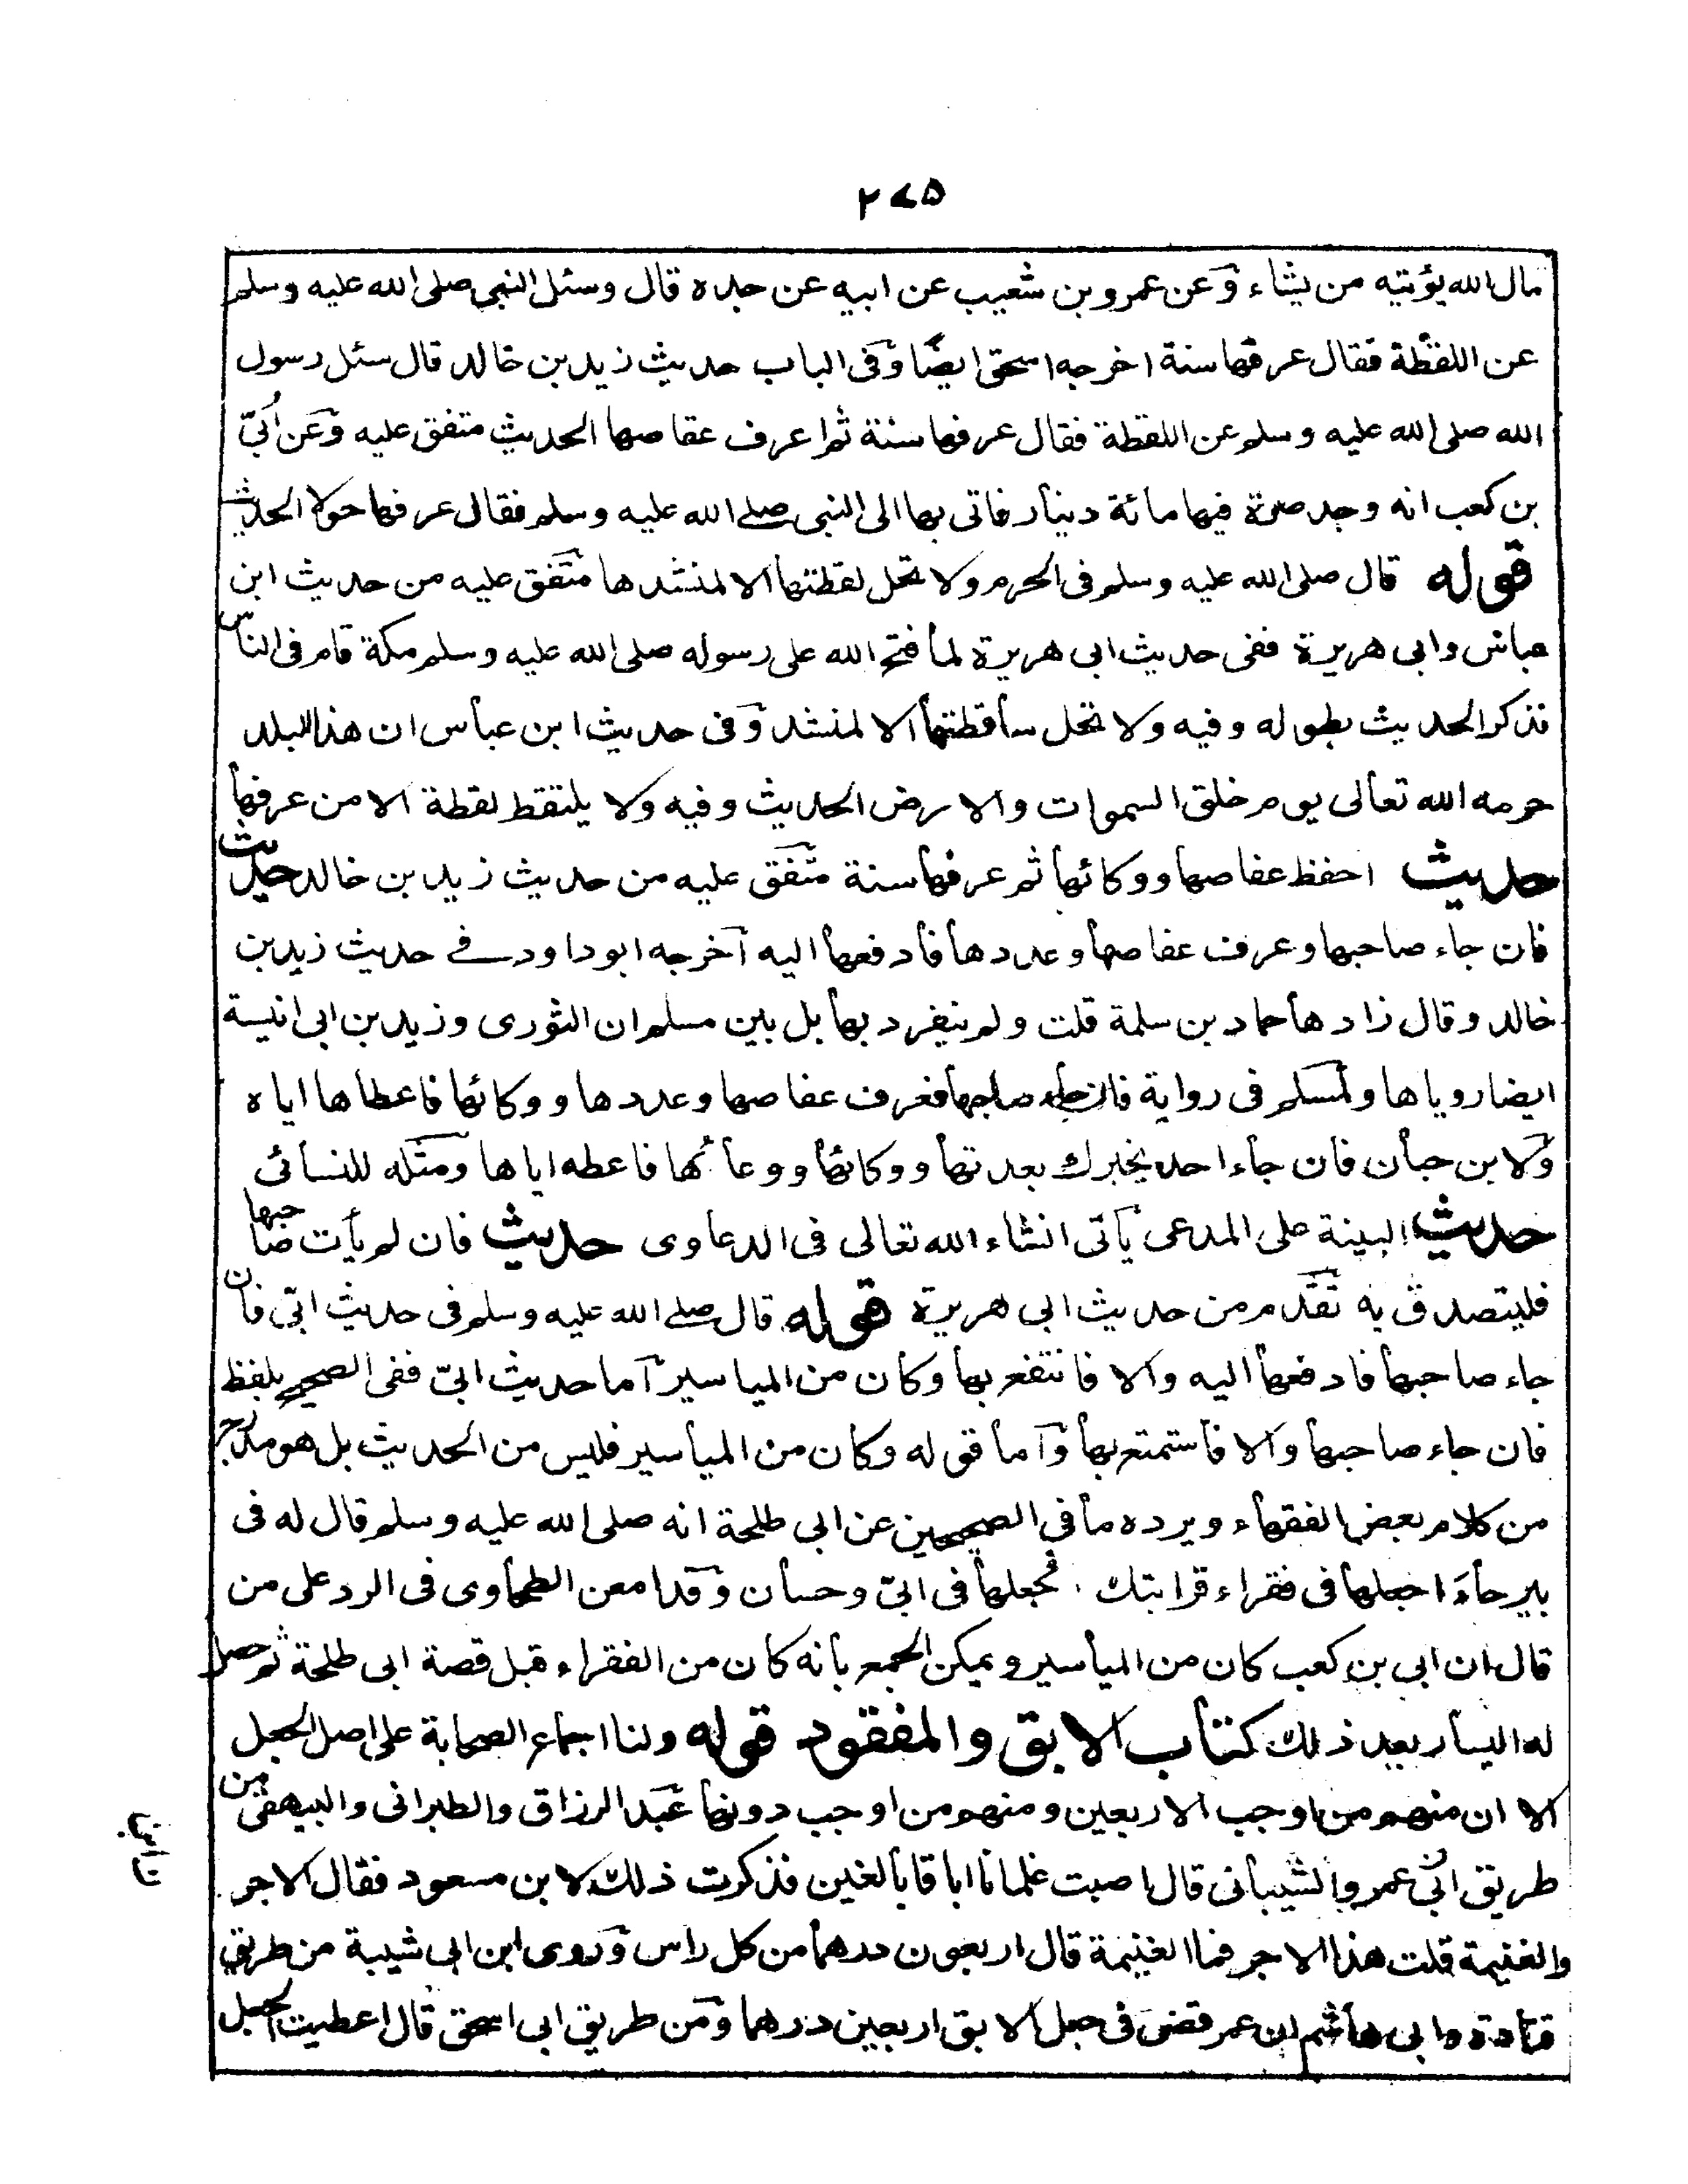 ۲۷۵
مال الله يؤتيه من يشاء وعن عمرو بن شعيب عن ابيه عن جده قال وسئل النبى صلى الله عليه وسلم
عن اللقطة فقال عرفها سنة اخرجه اسحق ايضا وفى الباب حديث زيد بن خالد قال سئل رسول
الله صلى الله عليه وسلم عن اللقطة فقال عرفها سنة ثم اعرف عفاصها الحديث متفق عليه وعن أبىّ
بن كعب انه وجد صرة فيها مائة دينار فاتى بها الى النبى صلے الله عليه وسلم فقال عرفها حولا الحديث
قوله قال صلى الله عليه وسلم فى الحرم ولا تحل لقطتها الا لمنشدها متفق عليه من حديث ابن
عباس وابى هريرة ففى حديث ابى هريرة لما فتح الله على رسوله صلى الله عليه وسلم مكة قام فى الناس
فذكر الحديث بطوله وفيه ولا تحل ساقطتها الا لمنشد وفى حديث ابن عباس ان هذا البلد
حرمه الله تعالى يوم خلق السموات والارض الحديث وفيه ولا يلتقط لقطة الا من عرفها
حديث احفظ عفاصها ووكائها ثم عرفها سنة متفق عليه من حديث زيد بن خالد حديث
فان جاء صاحبها وعرف عفاصها وعددها فادفعها اليه اخرجه ابوداود فے حديث زيد بن
خالد وقال زادها حماد بن سلمة قلت ولم ينفرد بها بل بين مسلم ان الثورى وزيد بن ابى انيسة
ايضا روياها ولمسلم فى رواية فان جاء صاحبها فعرف عفاصها وعددها ووكائها فاعطاها اياه
ولابن حبان فان جاء احد يخبرك بعدتها ووكائها ووعائها فاعطه اياها ومثله للنسائى
حديث البينة على المدعى يأتى انشاء الله تعالى فى الدعاوى حديث فان لم يأت صاحبها
فليتصدق به تقدم من حديث ابى هريرة قوله قال صلے الله عليه وسلم فى حديث ابىّ فان
جاء صاحبها فادفعها اليه والا فانتفع بها وكان من المياسير اما حديث ابىّ ففى الصحيح بلفظ
فان جاء صاحبها والا فاستمتع بها واما قوله وكان من المياسير فليس من الحديث بل هو مدرج
من كلام بعض الفقهاء ويرده ما فى الصحيحين عن ابى طلحة انه صلى الله عليه وسلم قال له فى
بيرحاء اجعلها فى فقراء قرابتك فجعلها فى ابىّ وحسان وقد امعن الطحاوى فى الرد على من
قال ان ابى بن كعب كان من المياسير ويمكن الجمع بانه كان من الفقراء قبل قصة ابى طلحة ثم حصل
له اليسار بعد ذلك كتاب الابق والمفقود قوله ولنا اجماع الصحابة على اصل الجعل
الا ان منهم من اوجب الاربعين ومنهم من اوجب دونها عبد الرزاق والطبرانى والبيهقى من
طريق ابى عمرو الشيبانى قال اصبت غلمانا اباقا بالغين فذكرت ذلك لابن مسعود فقال الاجر
والغنيمة قلت هذا الاجر فما الغنيمة قال اربعون درهما من كل راس وروى ابن ابى شيبة من طريق
قتادة وابى هاشم ان عمر قضى فى جعل الابق اربعين درهما ومن طريق ابى اسحق قال اعطيت الجعل